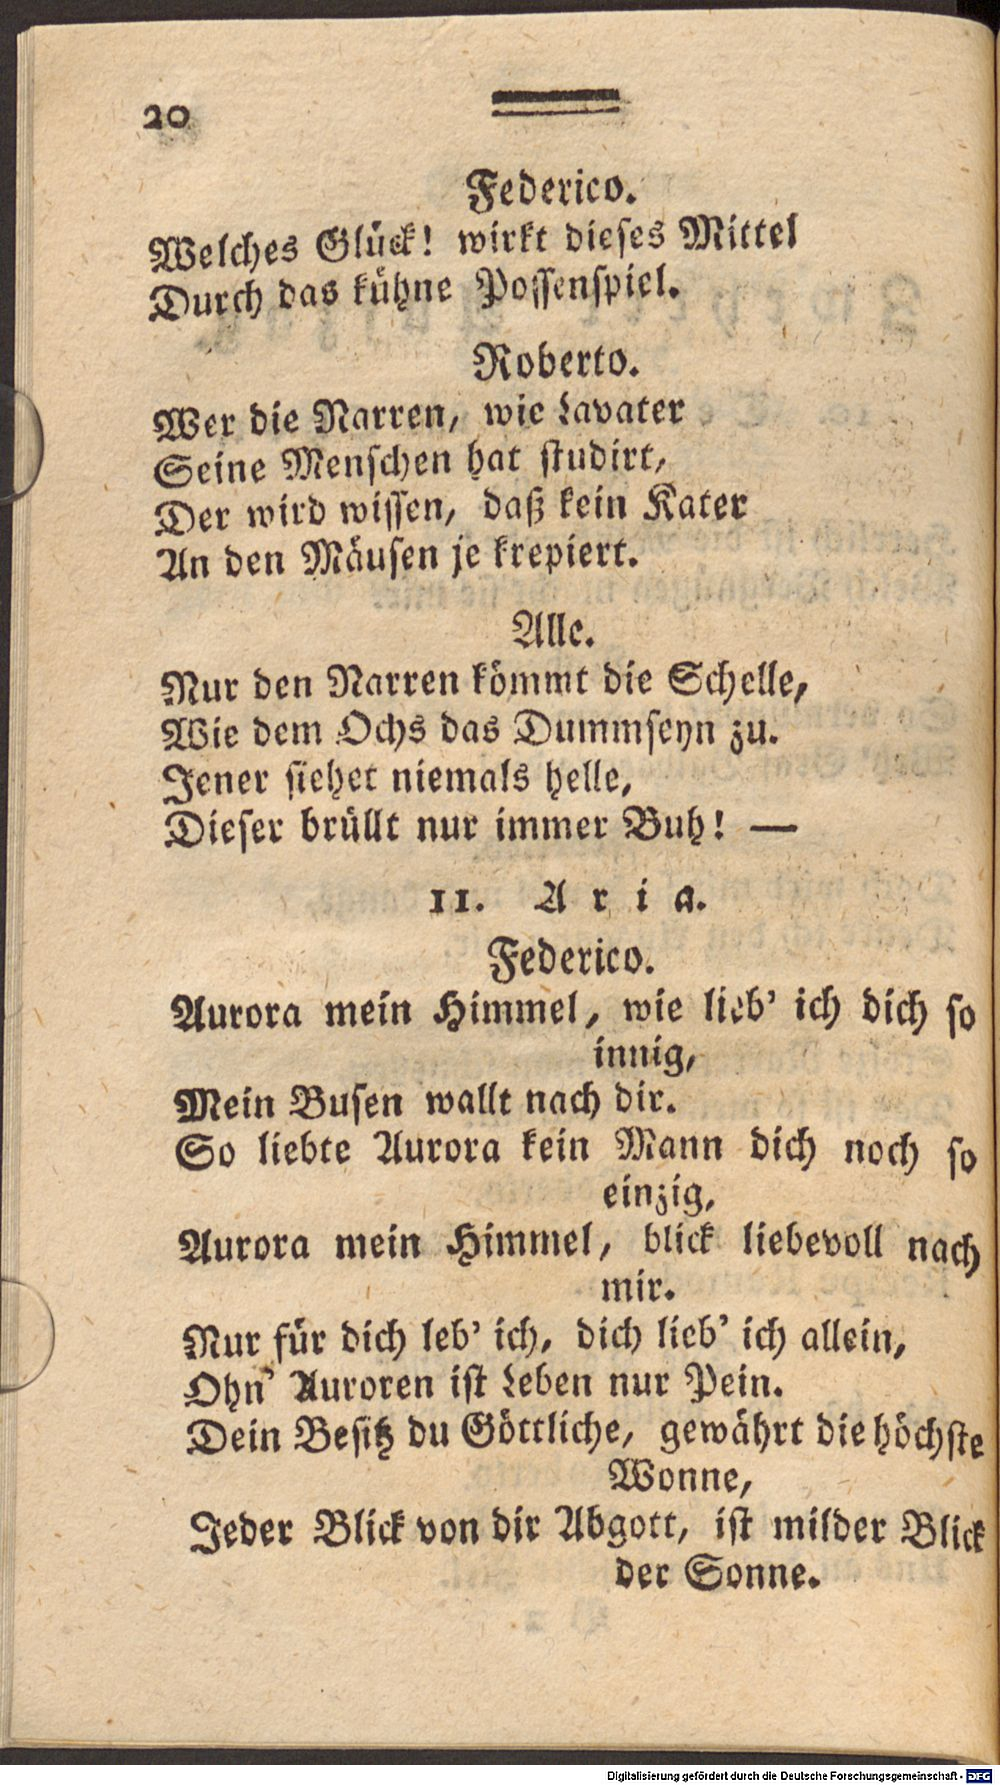 20
Federico.
Welches Glück! wirkt dieses Mittel
Durch das kühne Possenspiel.
Roberto.
Wer die Narren, wie Lavater
Seine Menschen hat studirt,
Der wird wissen, daß kein Kater
An den Mäusen je krepiert.
Alle.
Nur den Narren kömmt die Schelle,
Wie dem Ochs das Dummseyn zu.
Jener siehet niemals helle,
Dieser brüllt nur immer Buh! —
11. Aria.
Federico.
Aurora mein Himmel, wie lieb' ich dich so
innig,
Mein Busen wallt nach dir.
So liebte Aurora kein Mann dich noch so
einzig,
Aurora mein Himmel, blick liebevoll nach
mir.
Nur für dich leb' ich, dich lieb' ich allein,
Ohn' Auroren ist Leben nur Pein.
Dein Besitz du Göttliche, gewährt die höchste
Wonne,
Jeder Blick von dir Abgott, ist milder Blick
der Sonne.
Digitalisierung gefördert durch die Deutsche Forschungsgemeinschaft - DFG